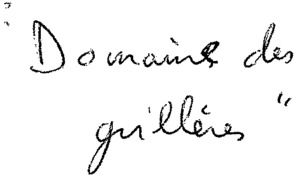 "Domaine des
grillères"